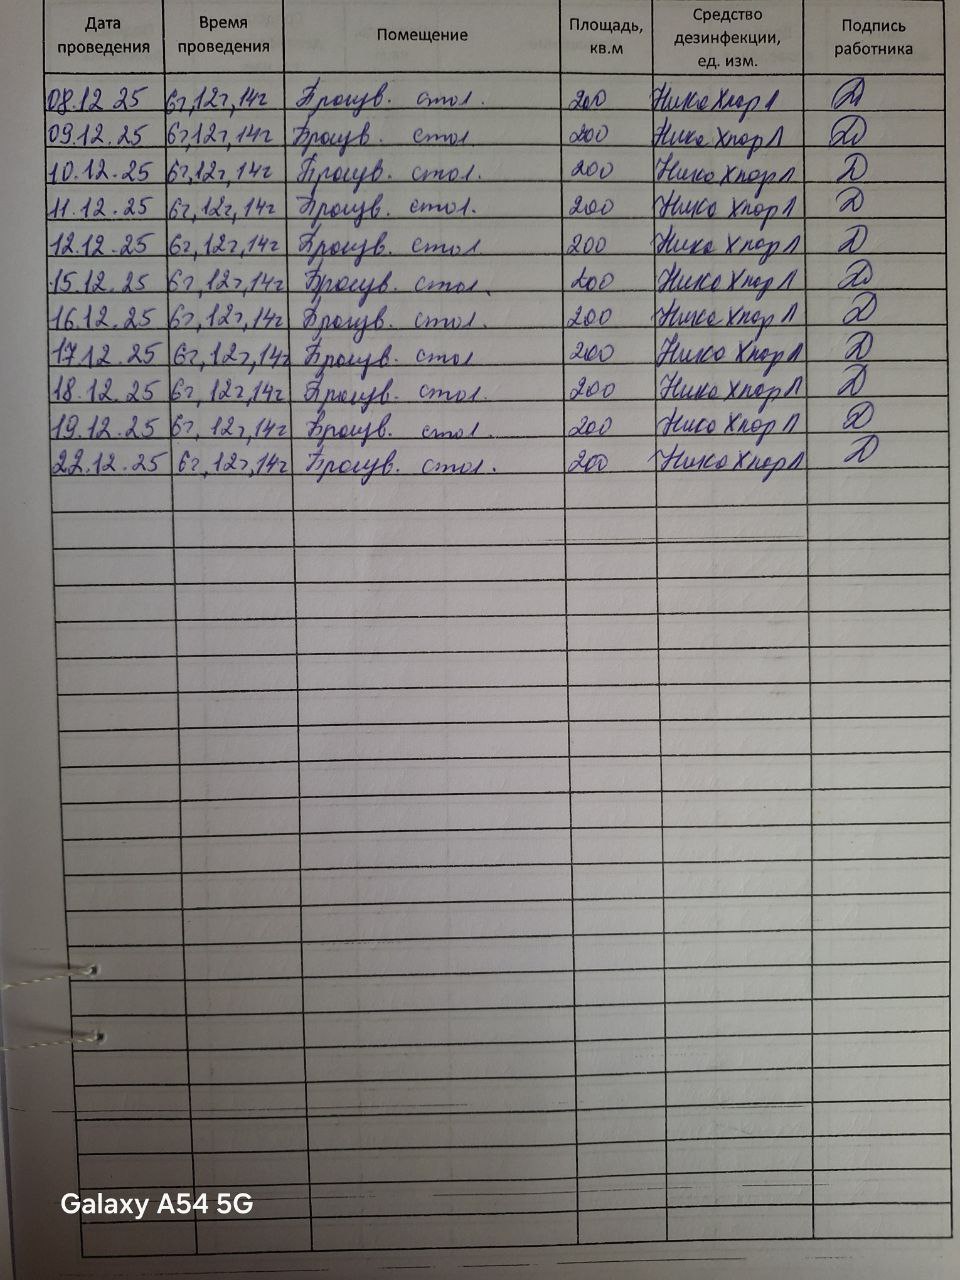 Дата проведения Время проведения Помещение Площадь, кв.м Средство дезинфекции, ед. изм. Подпись работника
08.12.25 6ч,12ч,14ч Произв. стол. 200 Нико Хлор Л Д
09.12.25 6ч,12ч,14ч Произв. стол 200 Нико Хлор Л Д
10.12.25 6ч,12ч,14ч Произв. стол. 200 Нико Хлор Л Д
11.12.25 6ч,12ч,14ч Произв. стол. 200 Нико Хлор Л Д
12.12.25 6ч,12ч,14ч Произв. стол 200 Нико Хлор Л Д
15.12.25 6ч,12ч,14ч Произв. стол. 200 Нико Хлор Л Д
16.12.25 6ч,12ч,14ч Произв. стол. 200 Нико Хлор Л Д
17.12.25 6ч,12ч,14ч Произв. стол 200 Нико Хлор Л Д
18.12.25 6ч,12ч,14ч Произв. стол. 200 Нико Хлор Л Д
19.12.25 6ч,12ч,14ч Произв. стол. 200 Нико Хлор Л Д
22.12.25 6ч,12ч,14ч Произв. стол. 200 Нико Хлор Л Д
Galaxy A54 5G